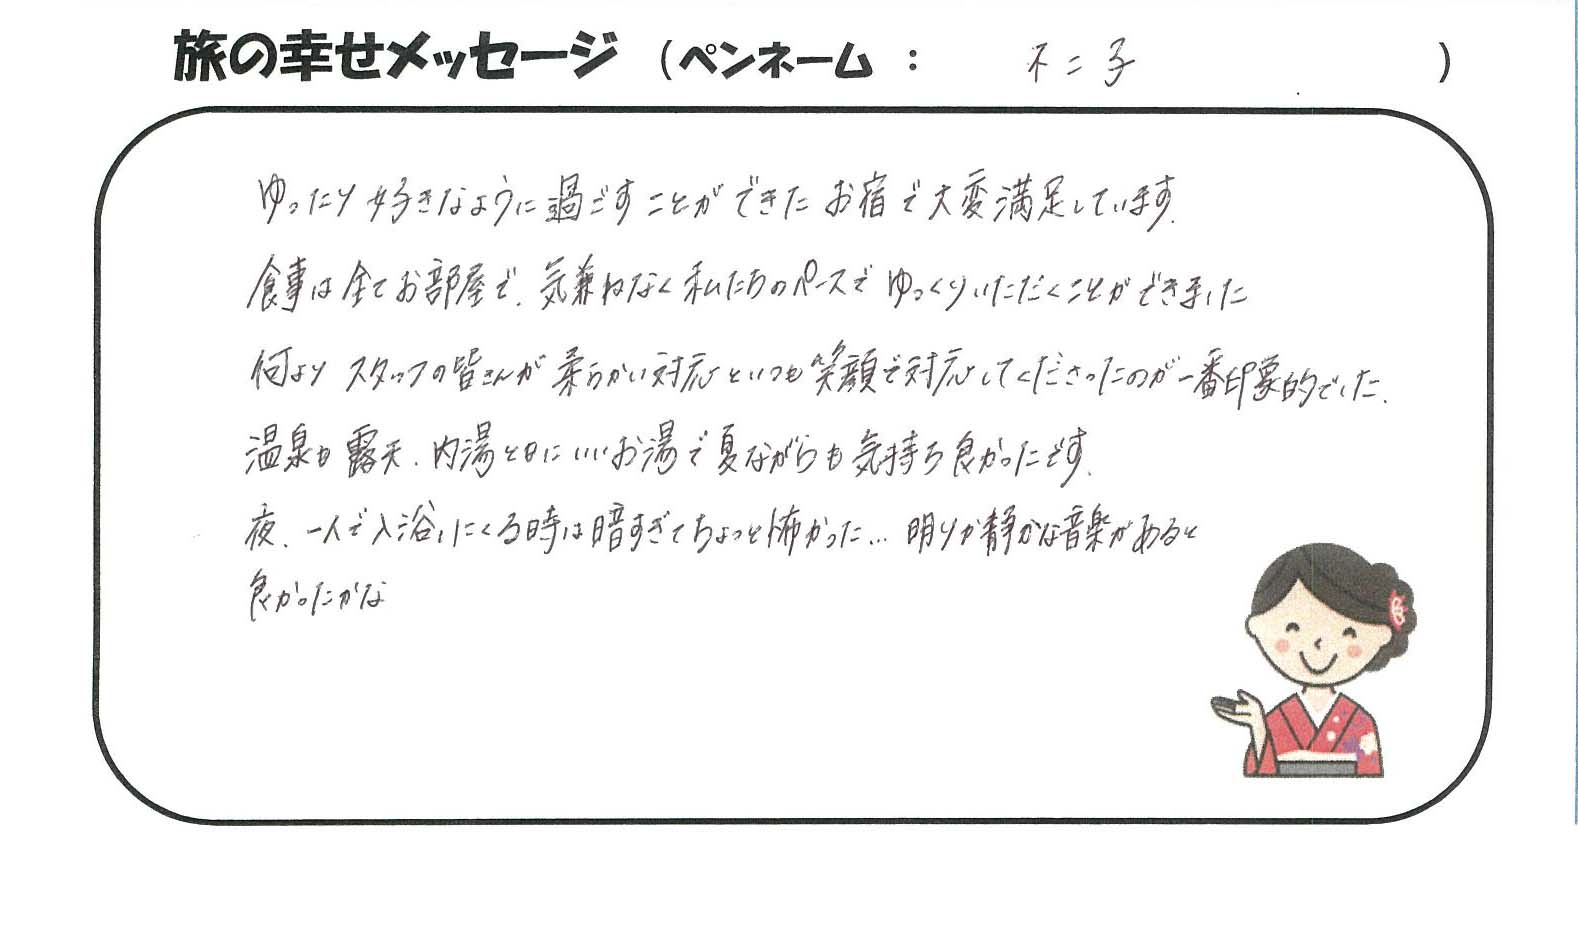 旅の幸せメッセージ (ペンネーム : 不二子 )
ゆったり好きなように過ごすことができたお宿で大変満足しています。
食事は全てお部屋で、気兼ねなく私たちのペースでゆっくりいただくことができました
何よりスタッフの皆さんが柔らかい対応といつも笑顔で対応してくださったのが一番印象的でした。
温泉も露天、内湯と共にいいお湯で夏ながらも気持ち良かったです。
夜、一人で入浴しにくる時は暗すぎてちょっと怖かった… 明りか静かな音楽があると
良かったかな